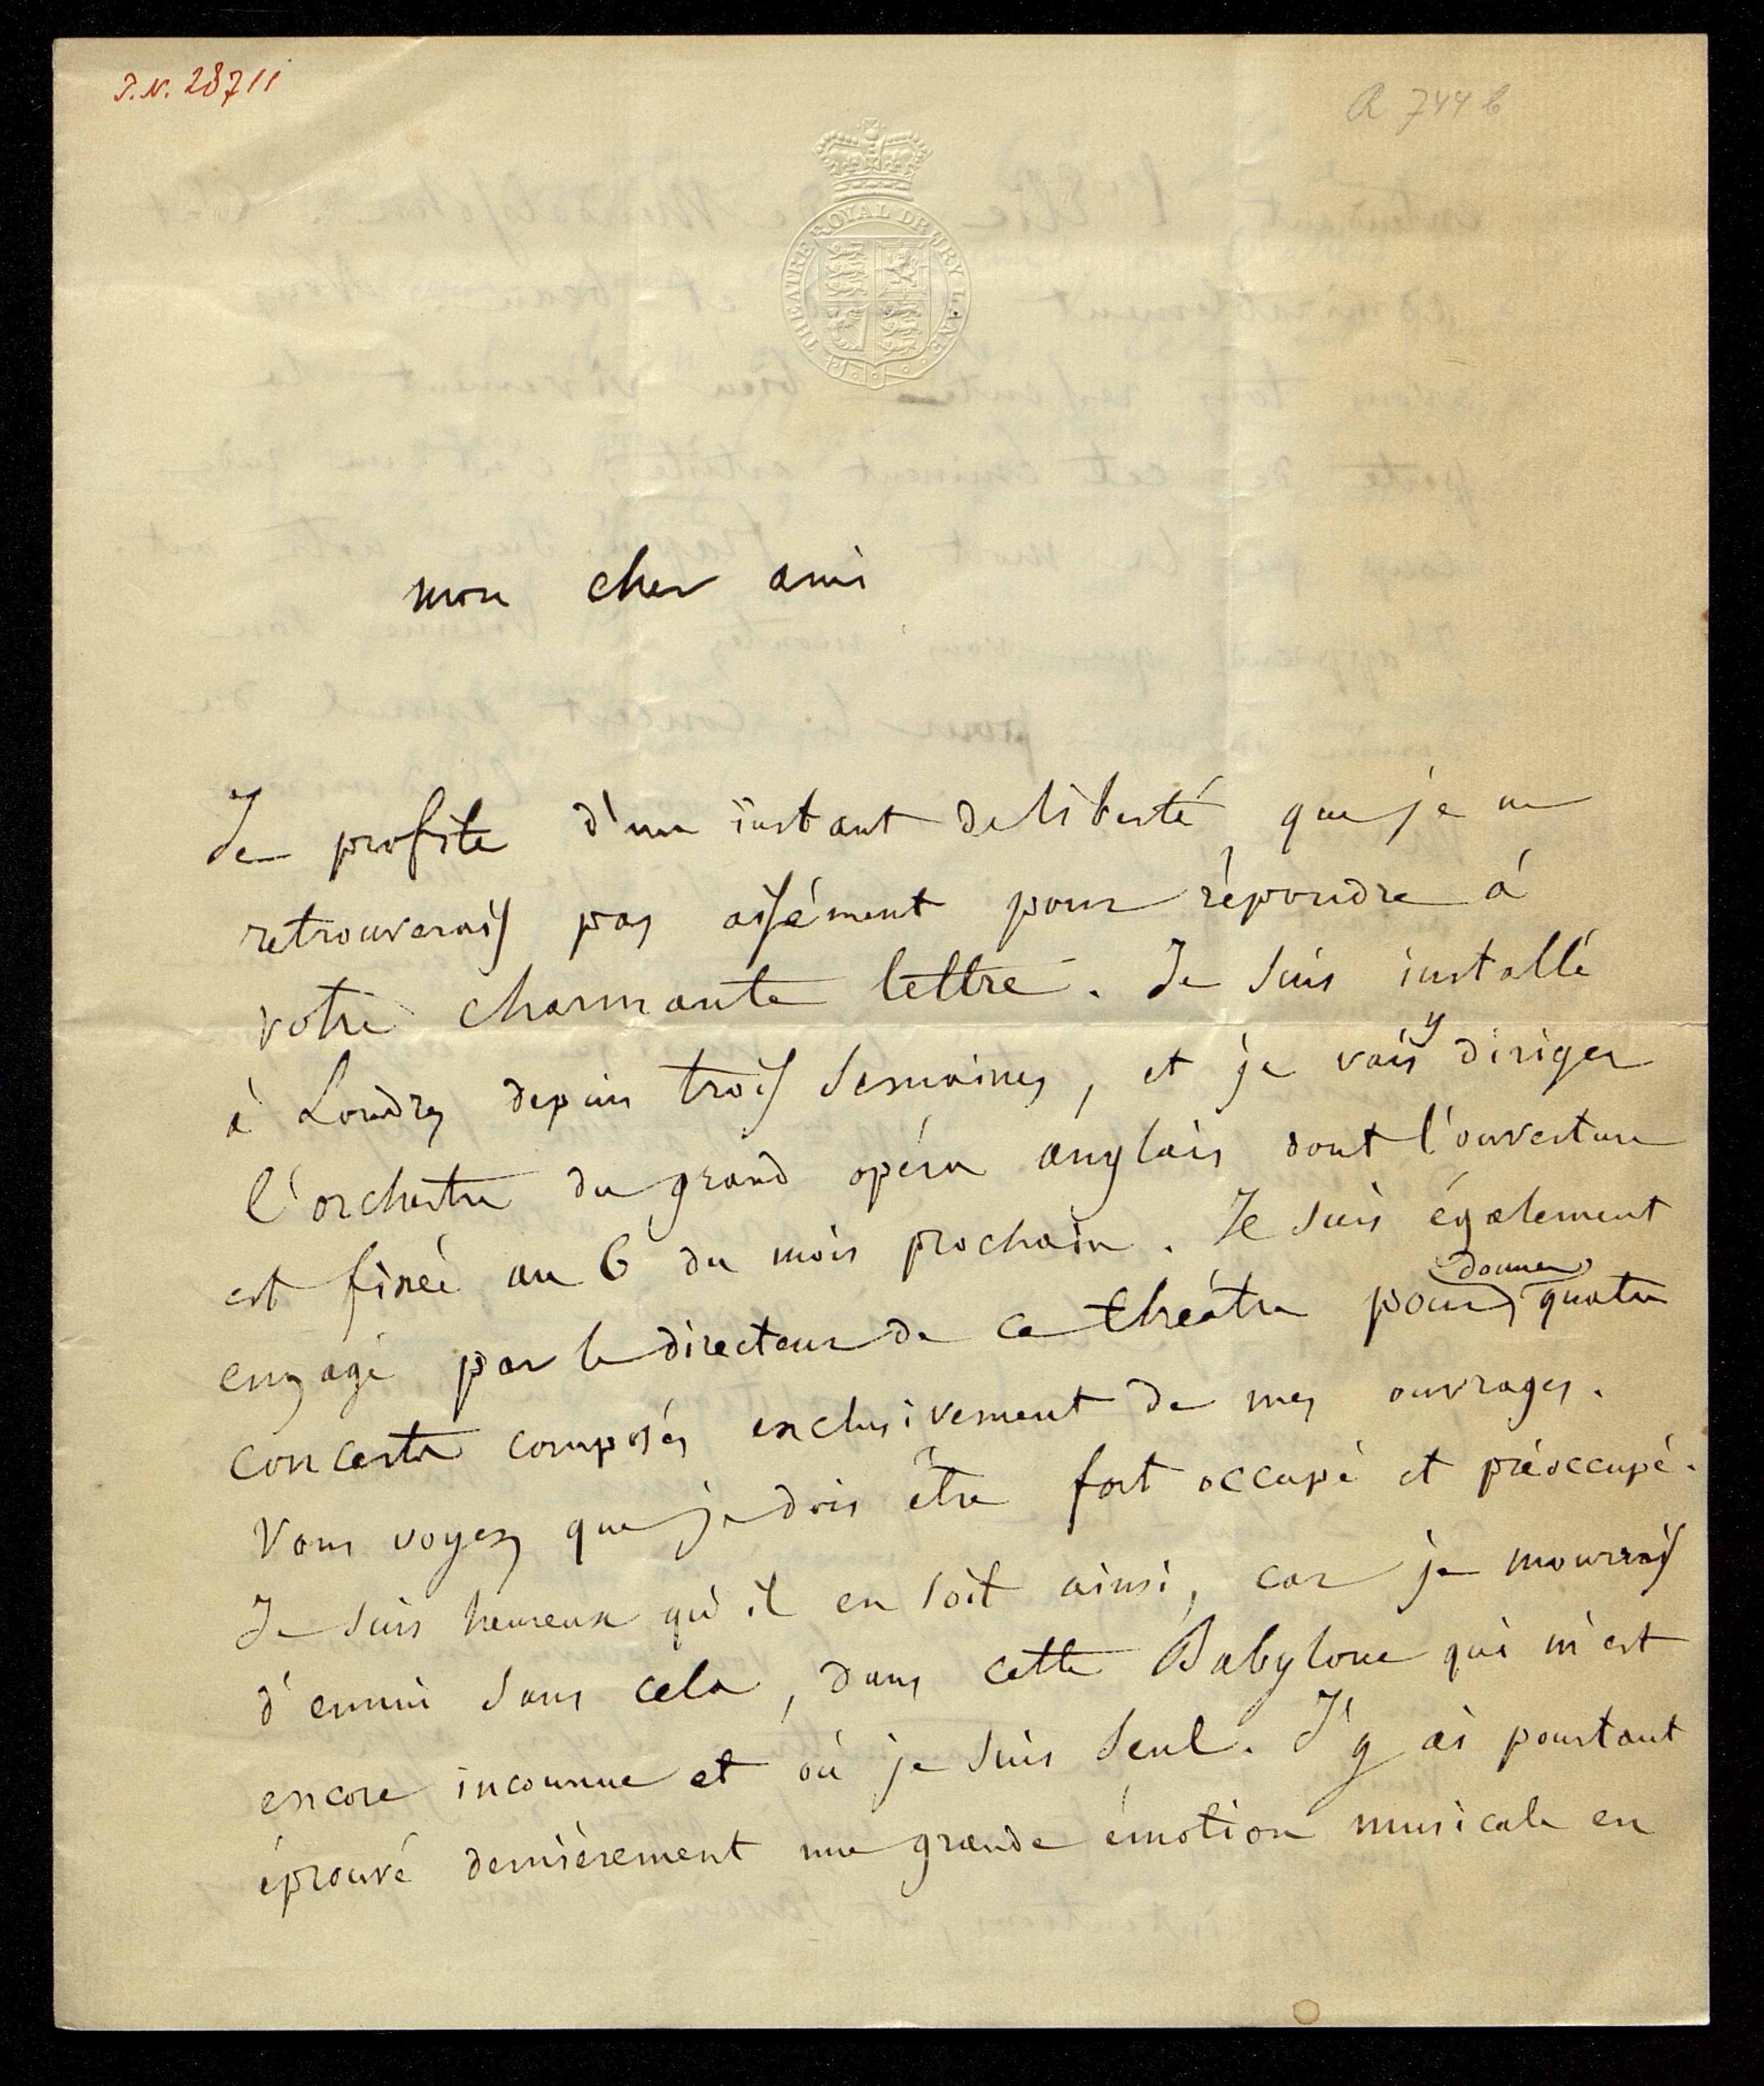 I.N. 28711
A 744 b
THEATRE ROYAL DRURY LANE
mon cher ami
Je profite d'un instant de liberté que je ne
retrouverais pas aisément pour répondre à
votre charmante lettre. Je suis installé
à Londres depuis trois semaines, et je vais y diriger
l'orchestre du grand opéra anglais dont l'ouverture
est fixée au 6 du mois prochain. Je suis également
engagé par le directeur de ce théâtre pour donner quatre
concerts composés exclusivement de mes ouvrages.
Vous voyez que je dois être fort occupé et préoccupé.
Je suis heureux qu'il en soit ainsi, car je mourrais
d'ennui sans cela, dans cette Babylone qui m'est
encore inconnue et où je suis seul. J'y ai pourtant
éprouvé dernièrement une grande émotion musicale en